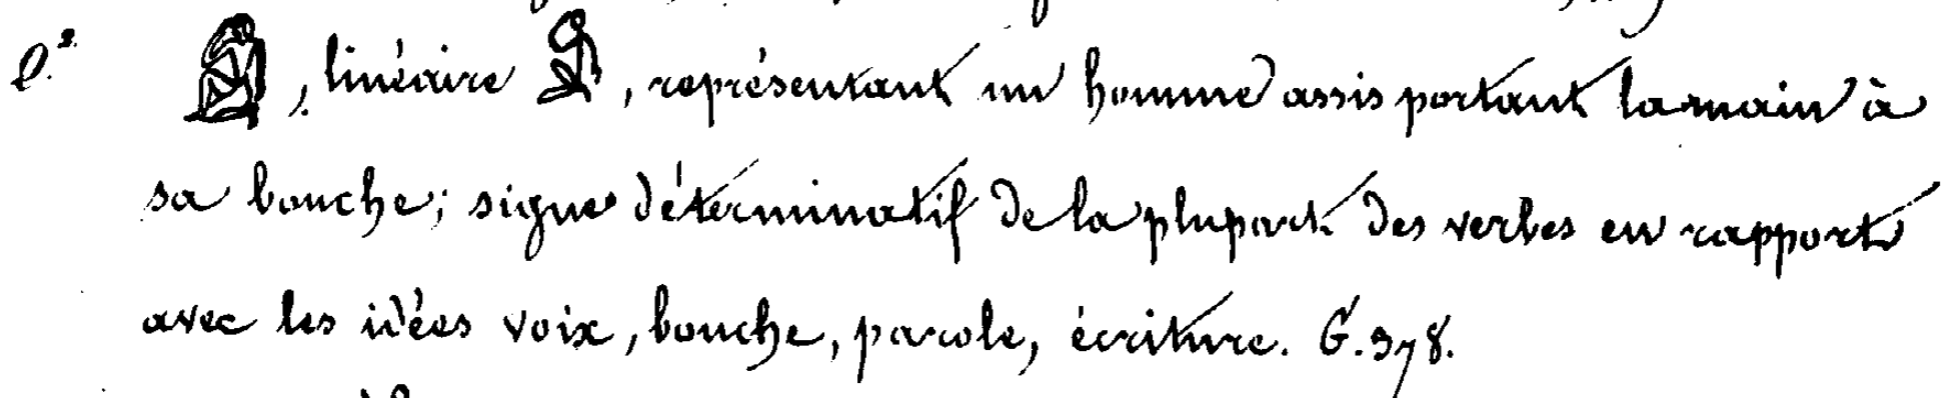 𓀁, linéaire 𓀁, représentant un homme assis portant la main à
sa bouche; signe déterminatif de la plupart des verbes en rapport
avec les idées voix, bouche, parole, écriture. G. 378.